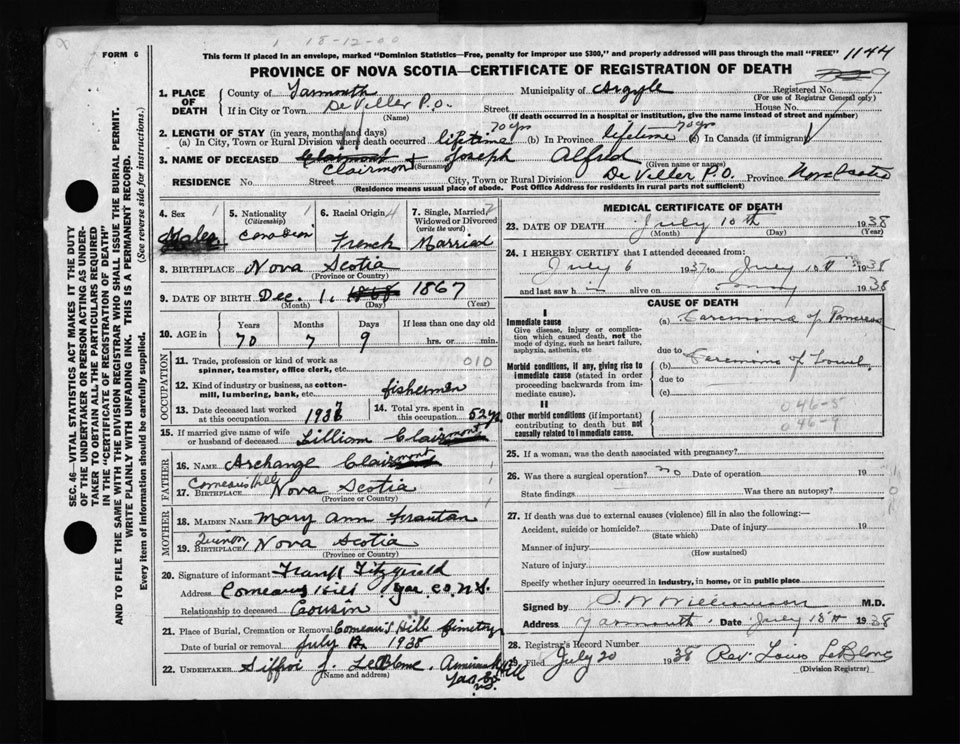 18-12-00
FORM 6
This form if placed in an envelope, marked "Dominion Statistics—Free, penalty for improper use $300," and properly addressed will pass through the mail "FREE"
1144
PROVINCE OF NOVA SCOTIA—CERTIFICATE OF REGISTRATION OF DEATH
SEC. 46—VITAL STATISTICS ACT MAKES IT THE DUTY
OF THE UNDERTAKER OR PERSON ACTING AS UNDER-
TAKER TO OBTAIN ALL THE PARTICULARS REQUIRED
IN THE "CERTIFICATE OF REGISTRATION OF DEATH"
AND TO FILE THE SAME WITH THE DIVISION REGISTRAR WHO SHALL ISSUE THE BURIAL PERMIT.
WRITE PLAINLY WITH UNFADING INK. THIS IS A PERMANENT RECORD.
Every item of information should be carefully supplied. (See reverse side for instructions.)
1. PLACE OF DEATH County of Yarmouth Municipality of Argyle Registered No.
(For use of Registrar General only)
If in City or Town De Viller P.O. Street House No.
(Name) (If death occurred in a hospital or institution, give the name instead of street and number)
2. LENGTH OF STAY (in years, months and days)
(a) In City, Town or Rural Division where death occurred lifetime 70 yrs (b) In Province lifetime 70 yrs (c) In Canada (if immigrant)
3. NAME OF DECEASED Clairmont Joseph Alfred
Clairmon (Surname) (Given name or names)
RESIDENCE No. Street City, Town or Rural Division De Viller P.O. Province Nova Scotia
(Residence means usual place of abode. Post Office Address for residents in rural parts not sufficient)
4. Sex 1 Male
5. Nationality 1 (Citizenship) Canadian
6. Racial Origin 4 French
7. Single, Married, Widowed or Divorced (write the word) Married
8. BIRTHPLACE Nova Scotia
(Province or Country)
9. DATE OF BIRTH Dec. 1. 1868 1867
(Month) (Day) (Year)
10. AGE in Years Months Days If less than one day
70 7 9 hrs. or min.
OCCUPATION
11. Trade, profession or kind of work as spinner, teamster, office clerk, etc. 010
12. Kind of industry or business, as cotton-mill, lumbering, bank, etc. fisherman
13. Date deceased last worked at this occupation 1937
14. Total yrs. spent in this occupation 52 yrs
15. If married give name of wife or husband of deceased Lilliam Clairmont
FATHER
16. NAME Archange Clairmont
Comeaus Hill
17. BIRTHPLACE Nova Scotia
(Province or Country)
MOTHER
18. MAIDEN NAME Mary Ann Frautan
Quinan,
19. BIRTHPLACE Nova Scotia
(Province or Country)
20. Signature of informant Frank Fitzgerald
Address Comeaus Hill Yar. Co. N.S.
Relationship to deceased Cousin
21. Place of Burial, Cremation or Removal Comeau's Hill Cemetery
Date of burial or removal July 12, 1938
22. UNDERTAKER Siffroi J. LeBlanc,
(Name and address)
MEDICAL CERTIFICATE OF DEATH
23. DATE OF DEATH July 10th 1938
(Month) (Day) (Year)
24. I HEREBY CERTIFY that I attended deceased from:
July 6 1937 to July 10th 1938
and last saw h alive on 1938
CAUSE OF DEATH
I
Immediate cause
Give disease, injury or complication which caused death, not the mode of dying, such as heart failure, asphyxia, asthenia, etc
(a) Carcinoma of Pancreas
due to
Morbid conditions, if any, giving rise to immediate cause (stated in order proceeding backwards from immediate cause).
(b) Carcinoma of bowel
due to
(c)
II
Other morbid conditions (if important) contributing to death but not causally related to immediate cause.
046-5
046-9
25. If a woman, was the death associated with pregnancy?
26. Was there a surgical operation? no Date of operation 19
State findings Was there an autopsy?
27. If death was due to external causes (violence) fill in also the following:—
Accident, suicide or homicide? Date of injury 19
(State which)
Manner of injury
(How sustained)
Nature of injury
Specify whether injury occurred in industry, in home, or in public place
Signed by S. W. Williamson M.D.
Address Yarmouth. Date July 15th 1938
28. Registrar's Record Number
29. Filed July 20 1938 Rev. Louis LeBlanc
(Division Registrar)